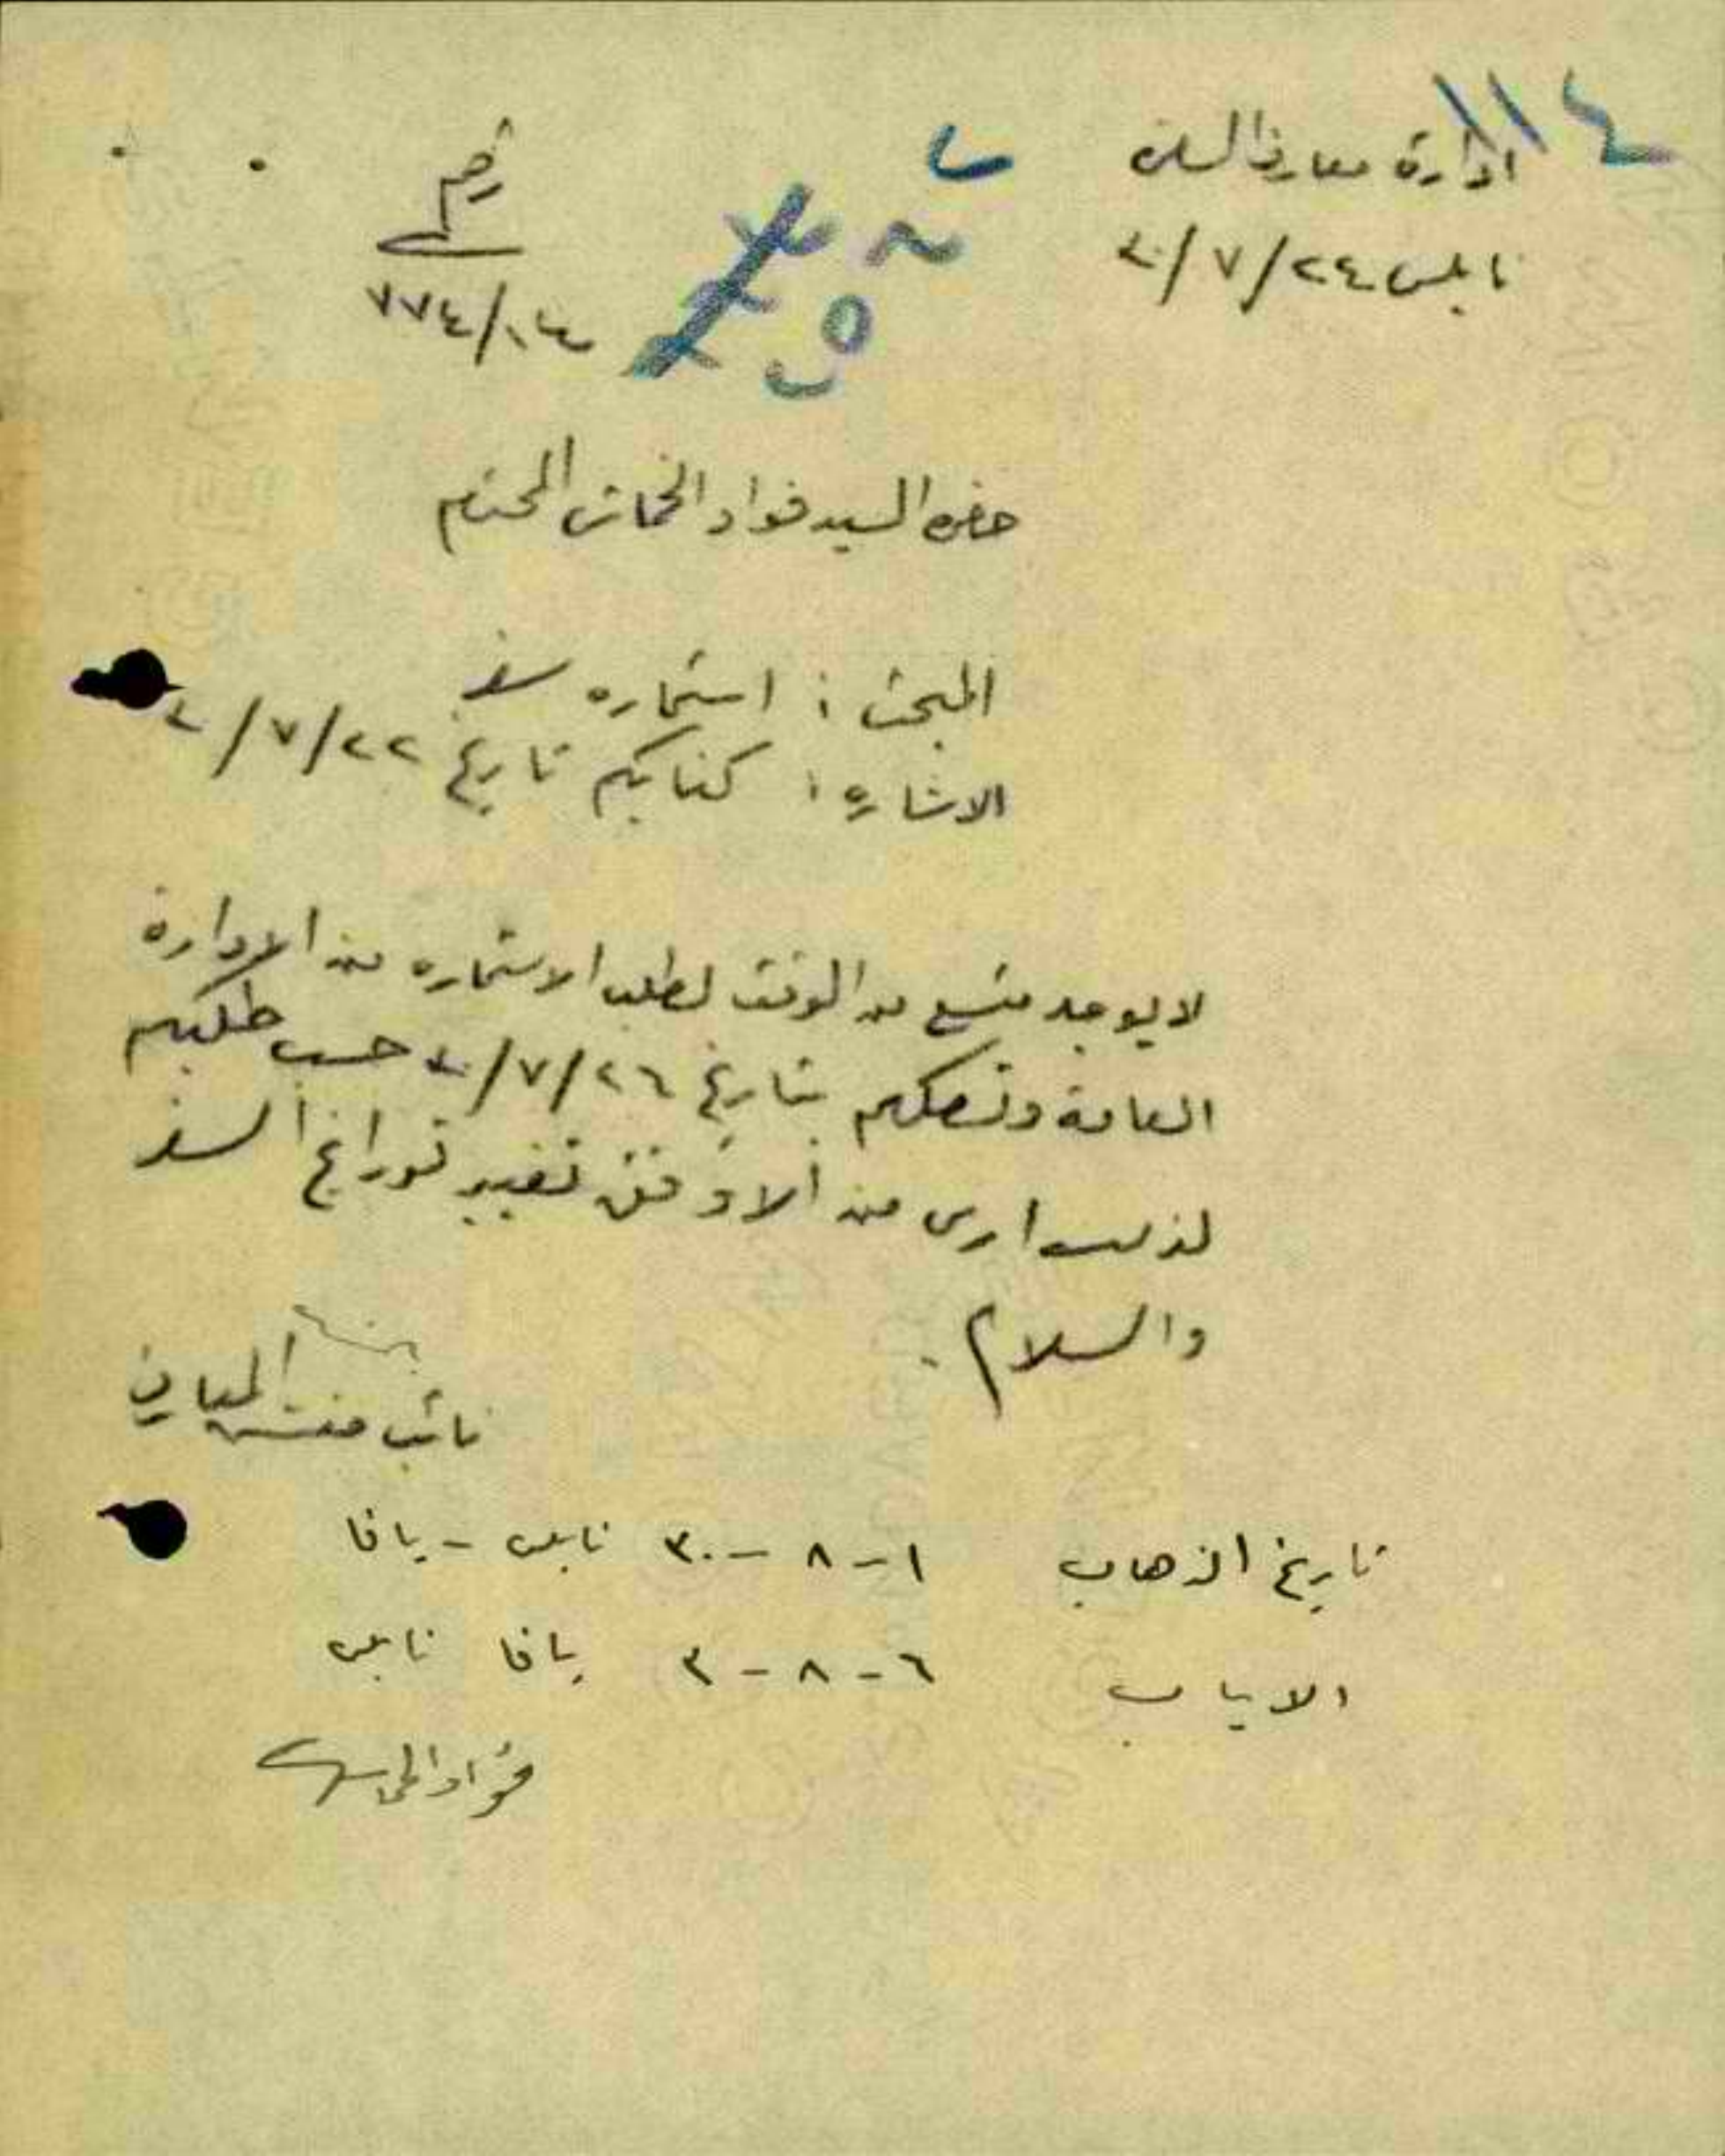 ١١٤
ادارة معارف السامرة
نابلس ٢٤/٧/٣٠
رقم
٧٧٤/١٤
حضرة السيد فواد الخماش المحترم
المبحث : استمارة سفر
الاشارة : كتابكم تاريخ ٢٢/٧/٣٠
لا يوجد متسع من الوقت لطلب الاستماره من الادارة
العامة وتصلكم بتاريخ ٢٦/٧/٣٠ حسب طلبكم
لذلك ارى من الاوفق تغيير تواريخ السفر
والسلام .
نائب مفتش المعارف
تاريخ الذهاب ١ - ٨ - ٣٠ نابلس - يافا
الاياب ٦ - ٨ - ٣ يافا نابلس
فؤاد الخماش